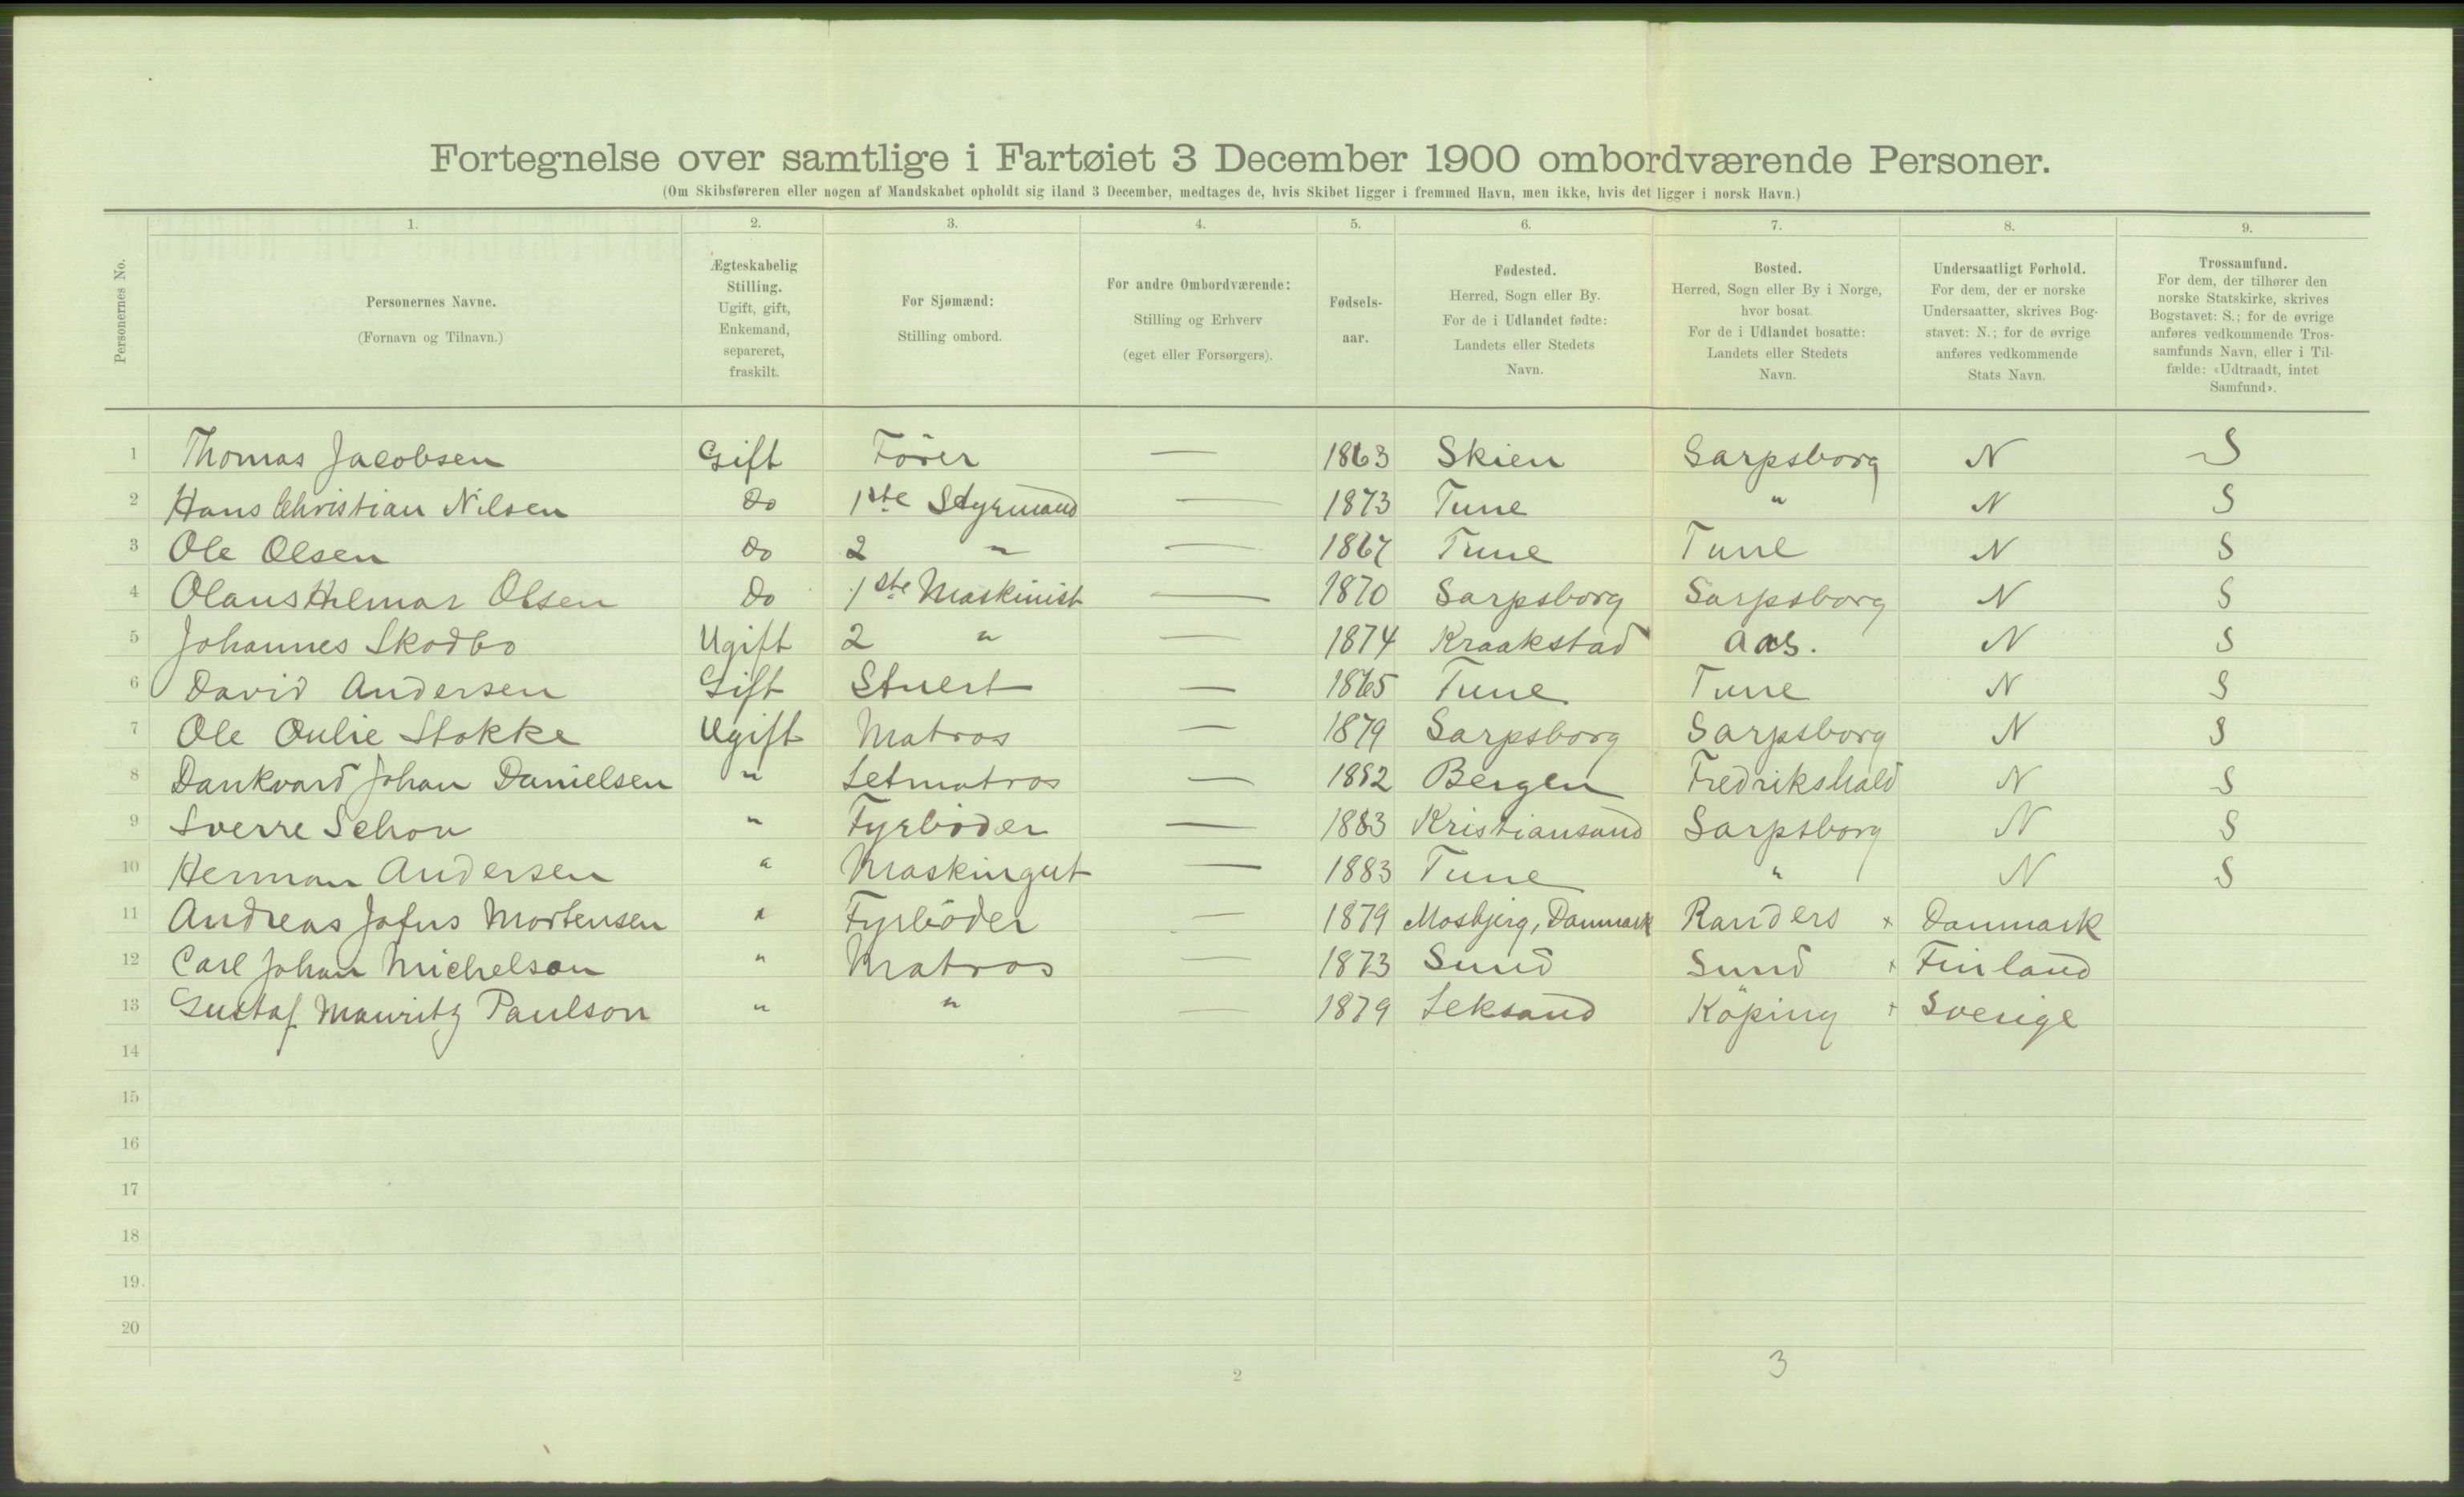 Fortegnelse over samtlige i Fartøiet 3 December 1900 ombordværende Personer.
(Om Skibsføreren eller nogen af Mandskabet opholdt sig iland 3 December, medtages de, hvis Skibet ligger i fremmed Havn, men ikke, hvis det ligger i norsk Havn.)
Personernes No.
1. 2. 3. 4. 5. 6. 7. 8. 9.
Personernes Navne. (Fornavn og Tilnavn.)
Ægteskabelig Stilling. Ugift, gift, Enkemand, separeret, fraskilt.
For Sjømænd: Stilling ombord.
For andre Ombordværende: Stilling og Erhverv (eget eller Forsørgers).
Fødsels-aar.
Fødested. Herred, Sogn eller By. For de i Udlandet fødte: Landets eller Stedets Navn.
Bosted. Herred, Sogn eller By i Norge, hvor bosat. For de i Udlandet bosatte: Landets eller Stedets Navn.
Undersaatligt Forhold. For dem, der er norske Undersaatter, skrives Bogstavet: N.; for de øvrige anføres vedkommende Stats Navn.
Trossamfund. For dem, der tilhører den norske Statskirke, skrives Bogstavet: S.; for de øvrige anføres vedkommende Trossamfunds Navn, eller i Tilfælde: «Udtraadt, intet Samfund».
1 Thomas Jacobsen Gift Förer — 1863 Skien Sarpsborg N S
2 Hans Christian Nilsen do 1ste Styrmand — 1873 Tune " N S
3 Ole Olsen do 2 " — 1867 Tune Tune N S
4 Olaus Hilmar Olsen do 1ste Maskinist — 1870 Sarpsborg Sarpsborg N S
5 Johannes Skodbo Ugift 2 " — 1874 Kraakstad Aas. N S
6 David Andersen Gift Stuert — 1865 Tune Tune N S
7 Ole Oulie Stokke Ugift Matros — 1879 Sarpsborg Sarpsborg N S
8 Dankvard Johan Danielsen " Letmatros — 1882 Bergen Fredrikshald N S
9 Sverre Schou " Fyrböder — 1883 Kristiansand Sarpsborg N S
10 Herman Andersen " Maskingut — 1883 Tune " N S
11 Andreas Mortensen " Fyrböder — 1879 Mosbjerg, Danmark Randers × Danmark
12 Carl Johan Michelson " Matros — 1873 Sund Sund × Finland
13 Gustaf Mauritz Paulson " " — 1879 Leksand Köping + Sverige
14
15
16
17
18
19.
20
2
3